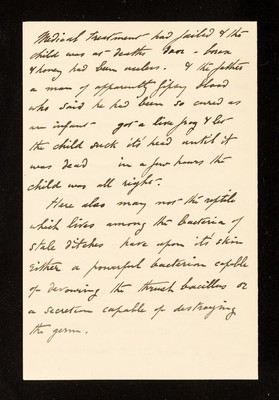 Medical treatment had failed & the
child was at deaths door - borax
& honey had been useless. & the father
a man of apparently gipsy blood
who said he had been so cured as
an infant - got a live frog & let
the child suck it's head until it
was dead in a few hours the
child was all right.
Here also may not the reptile
which lives among the bacteria of
stale ditches have upon it's skin
either a powerful bacterium capable
of devouring the thrush bacillus or
a secretion capable of destroying
the germ.